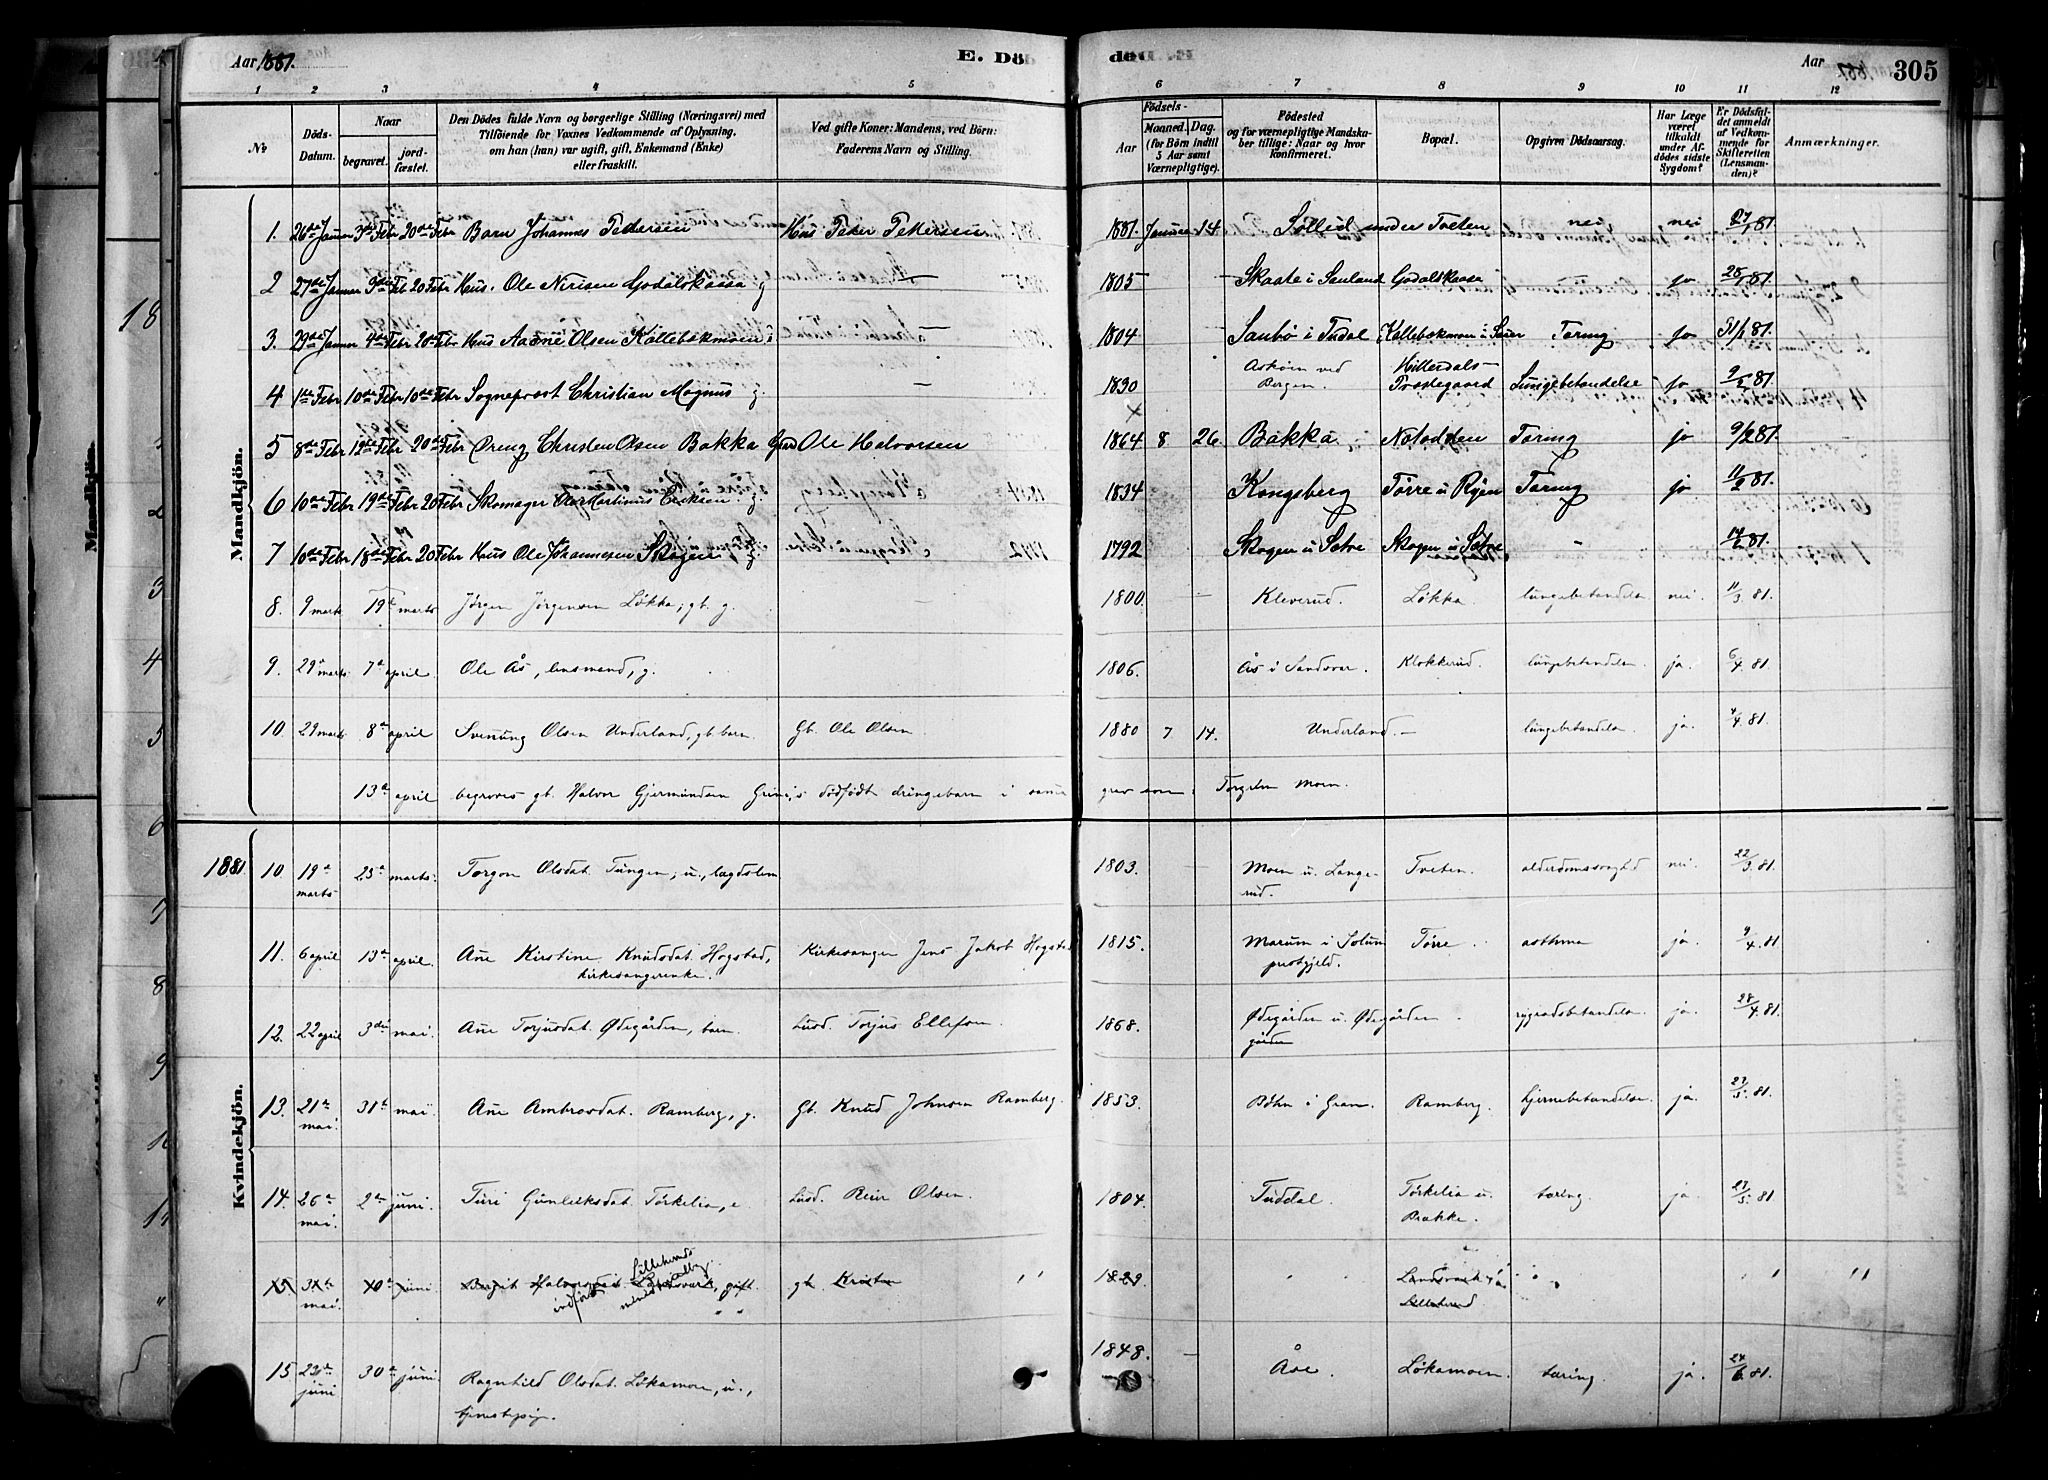 Aar 1881.
E. Död
døde
Aar 1881.
305
1 2 3 4 5 6 7 8 9 10 11 12
No
Döds-Datum.
Naar
begravet.
jord-fæstet.
Den Dödes fulde Navn og borgerlige Stilling (Næringsvei) med
Tilföiende for Voxnes Vedkommende af Oplysning,
om han (hun) var ugift, gift, Enkemand (Enke)
eller fraskilt.
Ved gifte Koner: Mandens, ved Börn:
Faderens Navn og Stilling.
Födsels-
Aar
Maaned. Dag.
(for Börn indtil
5 Aar samt
Værnepligtige).
Födested
og for værnepligtige Mandska-
ber tillige: Naar og hvor
konfirmeret.
Bopæl.
Opgiven Dödsaarsag.
Har Læge
været
tilkaldt
under Af-
dödes sidste
Sygdom?
Er Dödsfal-
det anmeldt
af Vedkom-
mende for
Skifteretten
(Lensman-
den)?
Anmærkninger.
Mandkjön.
1. 26de Januar 3die Febr 20de Febr Barn Johannes Pedersen Hus Peter Pettersen 1881. Januar 14 Söllid under Tveten nei nei 27/1 81
2 27de Januar 9de Feb 20 Febr Hus. Ole Nirisen Godalskaasa g — 1805 — Skaate i Sauland Godalskaasa jo 28/1 81
3. 29de Januar 4de Febr 20de Febr Hus Aasne Olsen Kallebekmoen — 1804 Saubø i Tudal Kallebekmoen i Sem Tæring jo 31/1 81.
4 1ste Febr 10de Febr 10de Febr Sogneprest Christian Magnus g. — 1830 Askøien ved Bergen. Hitterdals-Præstegaard Lungebetændelse jo 9/2 81
5 8de Febr 12te Febr 20 Febr Dreng Christen Olsen Bakka Grd Ole Halvorsen 1864 8 26. Bakka Notodden Tæring jo 9/2 81.
6 10de Febr 19de Febr 20 Febr Skomager Ole Martinius Eriksen. g 1834 Kongsberg Tørre u Ryen Tæring jo 11/2 81.
7 10de Febr 18de Febr 20 Febr Hus Ole Johannesen Skogen g 1792 Skogen u Sætre Skogen u Sætre - 14/2 81.
8. 9 marts 19de marts Jörgen Jörgensen Løkka, gb. g. 1800 — Kleverud. Løkka. lungebetændelse nei. 11/3. 81.
9. 29de marts 7de april. Ole Ås, lensmand, g. 1806. Ås i Sandsvær. Klokkerud. lungebetændelse. ja. 6/4. 81.
10. 29 marts 8de april Svenung Olsen Underland, gb. barn. Gb. Ole Olsen 1880 7 14. Underland. — lungebetændelse. ja. 4/4. 81.
13de april begroves gb. Halvor Gjermundsen Grini's dödfödt drengebarn i samme grav som Torgrim Moen.
Kvindekjön.
1881 10. 19de marts 25de marts. Torgon Olsdat. Tungen, u., lægdslem 1803. Moen u. Lange-rud. Tveten. alderdomssvaghed nei. 22/3. 81.
11. 6 april 13de april. Ane Kirstine Knudsdat. Hogstad, kirkesangerenke. Kirkesanger Jens Jakob Hogstad 1815. Marum i Solum prestgjeld. Tørre asthma ja. 9/4. 81
12. 22 april 3die mai Ane Torjusdat. Ødegården, barn. Lusd. Torjus Ellefsen. 1868. Ødegården u. Ødegården. rygradsbetændelse ja. 28/4. 81.
13. 21de mai. 31te mai Ane Ambrosdat. Ramberg, g. Gb. Knud Johnsen Ramberg. 1853. Böhn i Gran. Ramberg. hjernebetændelse. ja. 23/5. 81.
14. 26de mai. 2den juni. Turi Gunleiksdat. Törkelia, e Lusd. Reier Olsen. 1804. Tuddal. Törkelia u. Brække. tæring. ja. 27/5. 81
15 31te mai. 10de juni Birgit Halvorsdat. gift gb. Kristen 1829. Lillehund
15 23de juni 30te juni. Ragnhild Olsdat. Løkamoen, u., tjenestepige. 1848. — Åse. Løkamoen. tæring. ja. 24/6. 81.